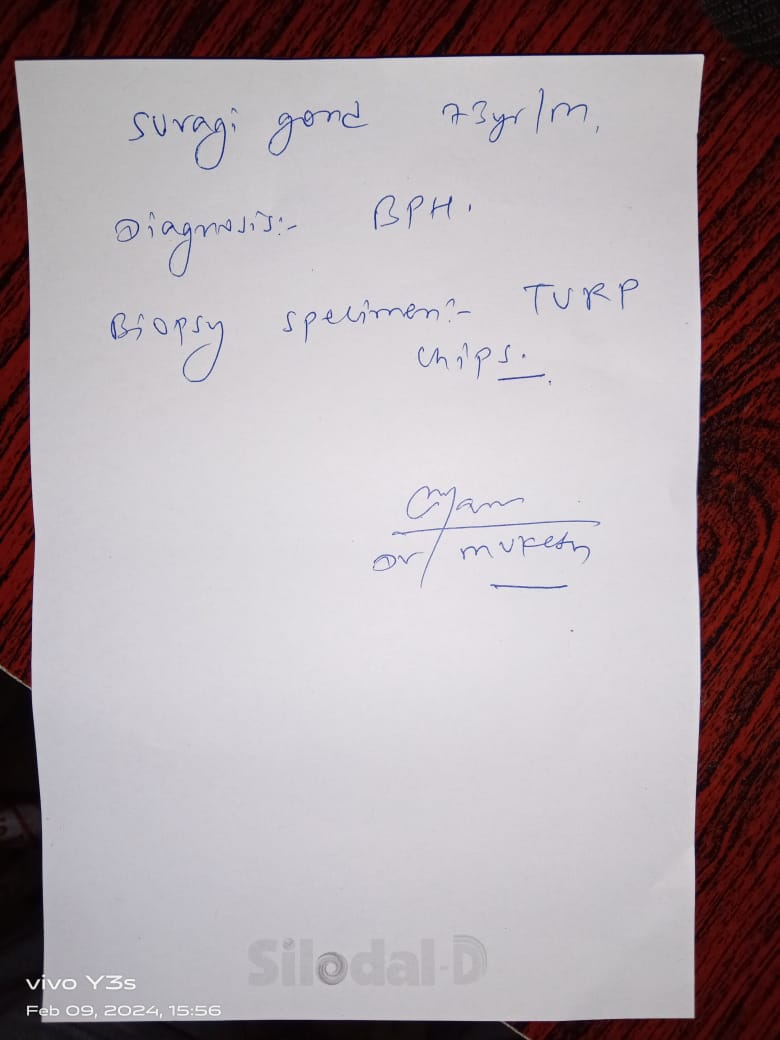 suragi gond 73yr/m,
Diagnosis:- BPH.
Biopsy specimen:- TURP
chips.
Dr/ mukesh
Silodal-D
vivo Y3s
Feb 09, 2024, 15:56